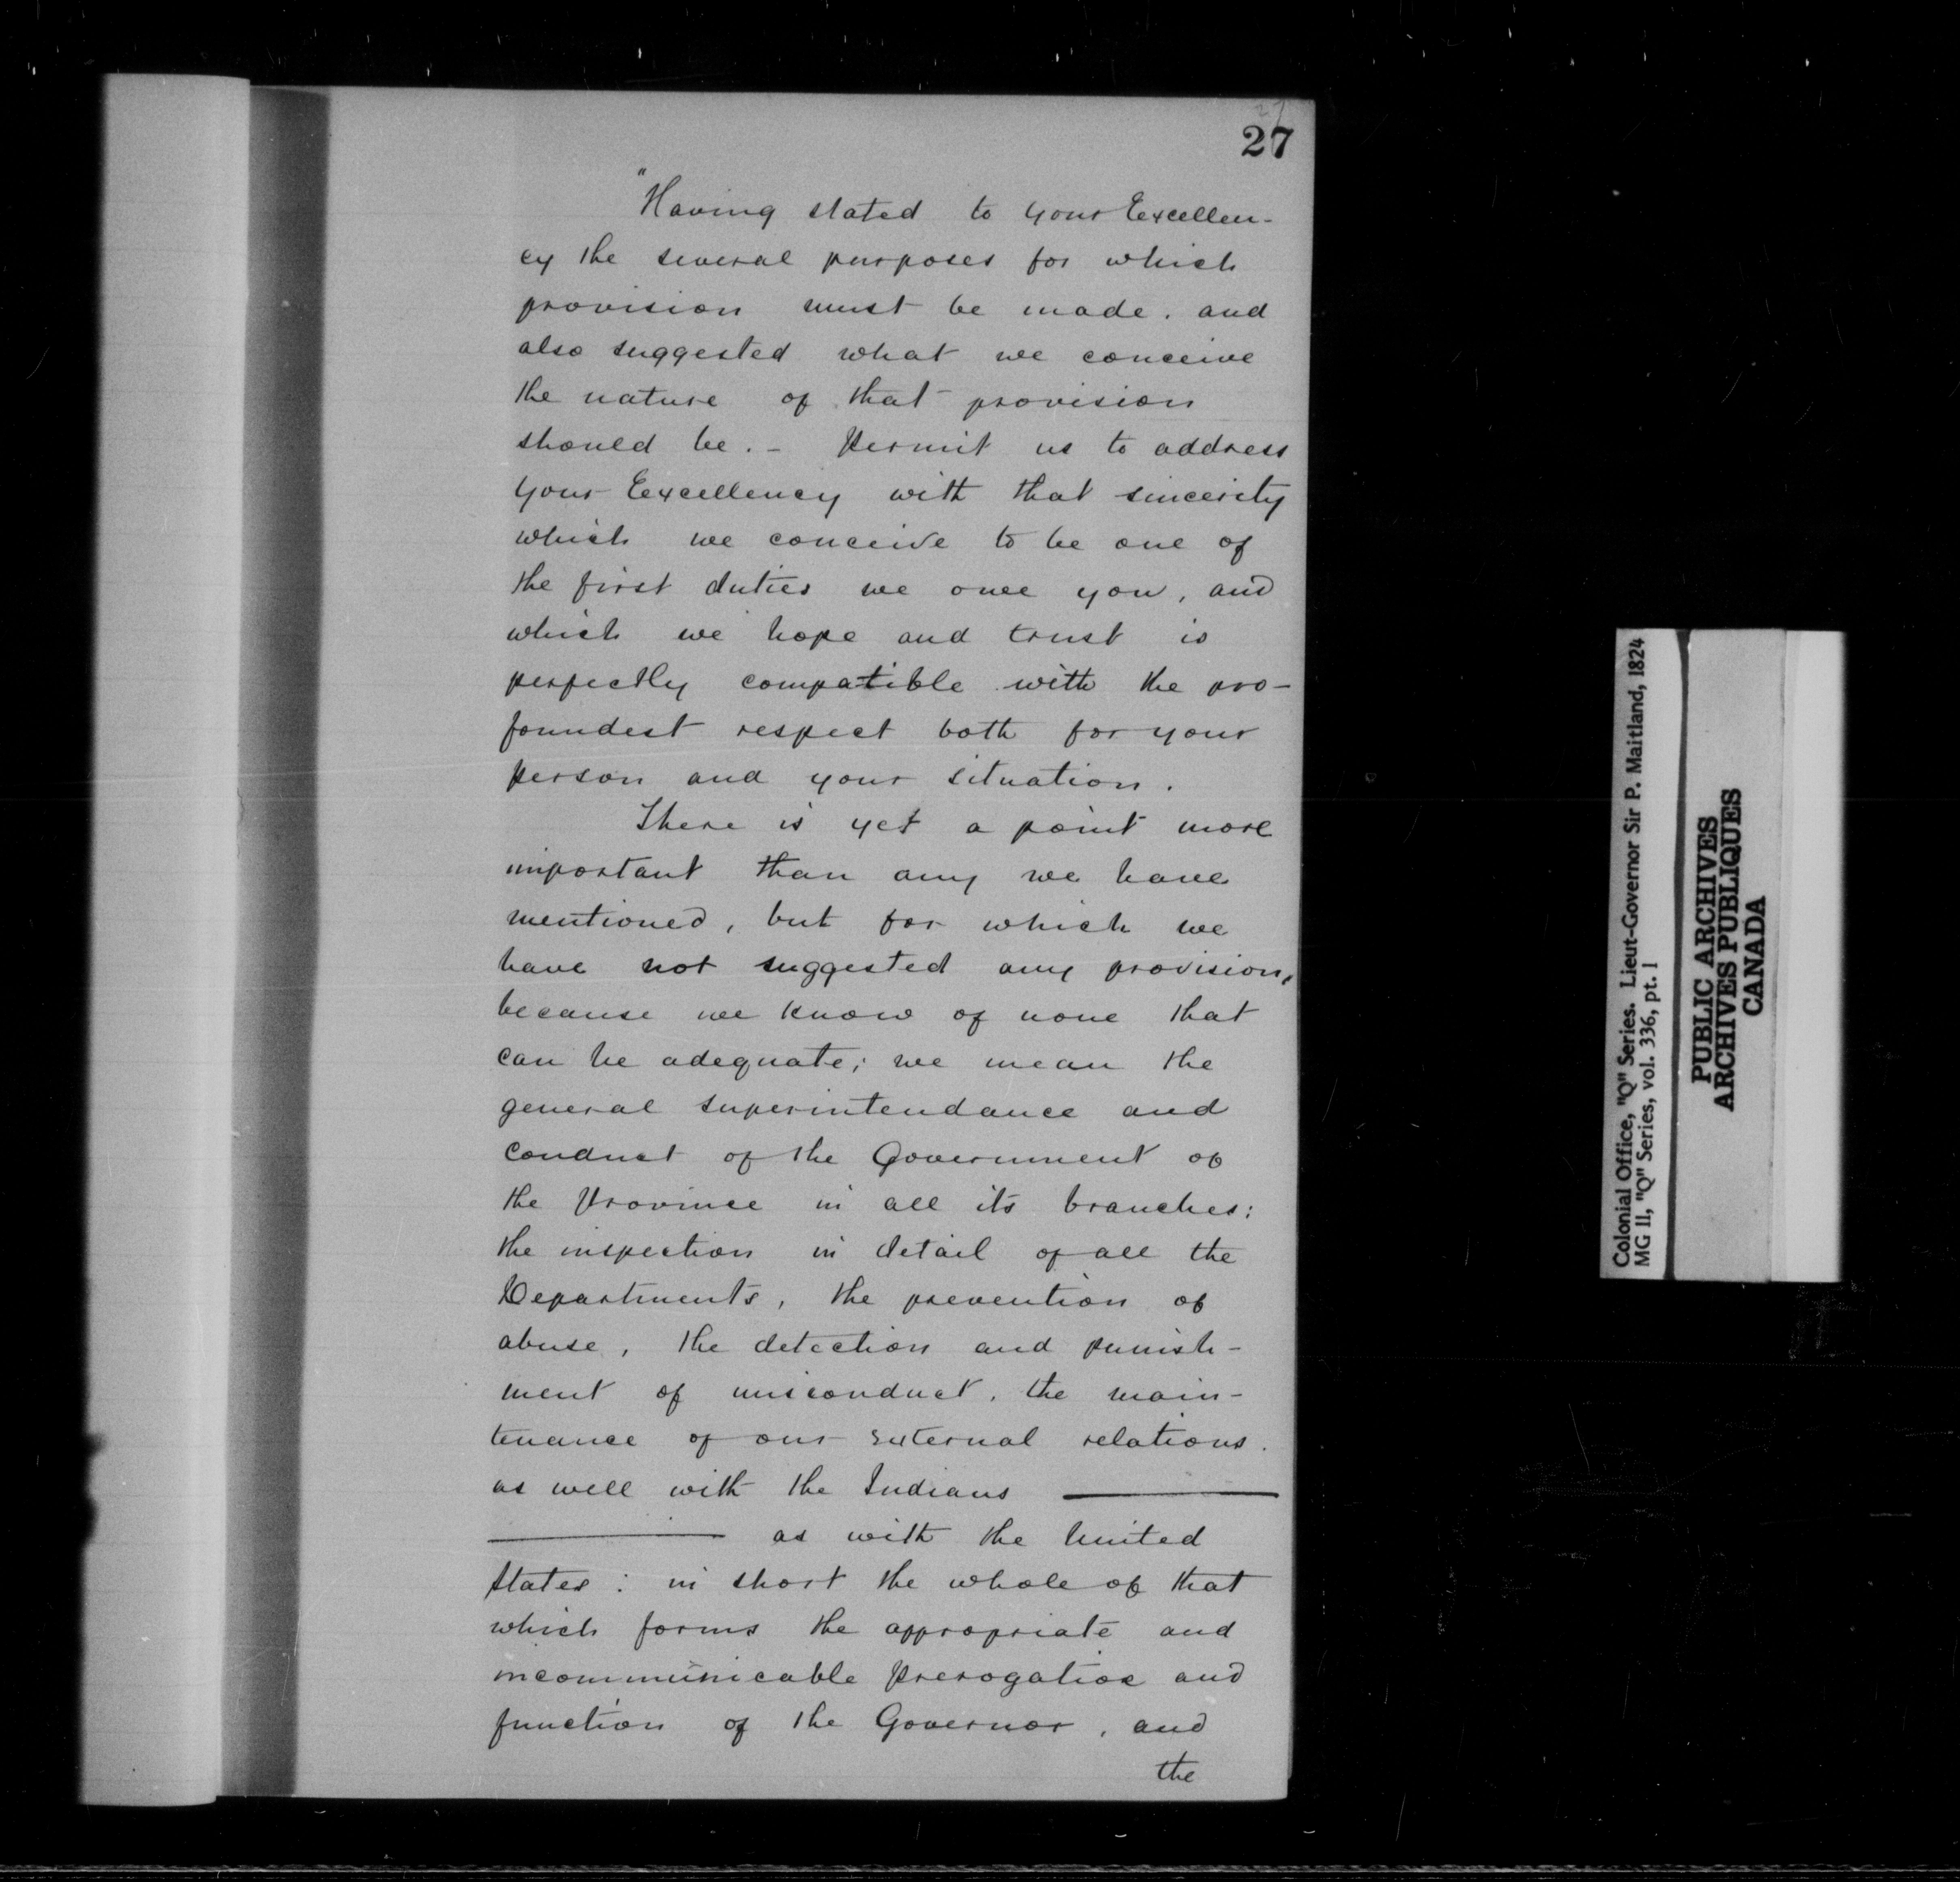 27
27
"Having stated to your Excellen-
cy the several purposes for which
provision must be made, and
also suggested what we conceive
the nature of that provision
should be. - Permit us to address
your Excellency with that sincerity
which we conceive to be one of
the first duties we owe you, and
which we hope and trust is
perfectly compatible with the pro-
foundest respect both for your
person and your situation.
There is yet a point more
important than any we have
mentioned, but for which we
have not suggested any provision,
because we know of none that
can be adequate; we mean the
general superintendance and
conduct of the Government of
the Province in all its branches:
the inspection in detail of all the
Departments, the prevention of
abuse, the detection and punish-
ment of misconduct, the main-
tenance of our external relations.
as well with the Indians ———
——— as with the United
States: in short the whole of that
which forms the appropriate and
incommunicable prerogative and
function of the Governor, and
the
Colonial Office, "Q" Series. Lieut-Governor Sir P. Maitland, 1824
MG 11, "Q" Series, vol. 336, pt. 1
PUBLIC ARCHIVES
ARCHIVES PUBLIQUES
CANADA